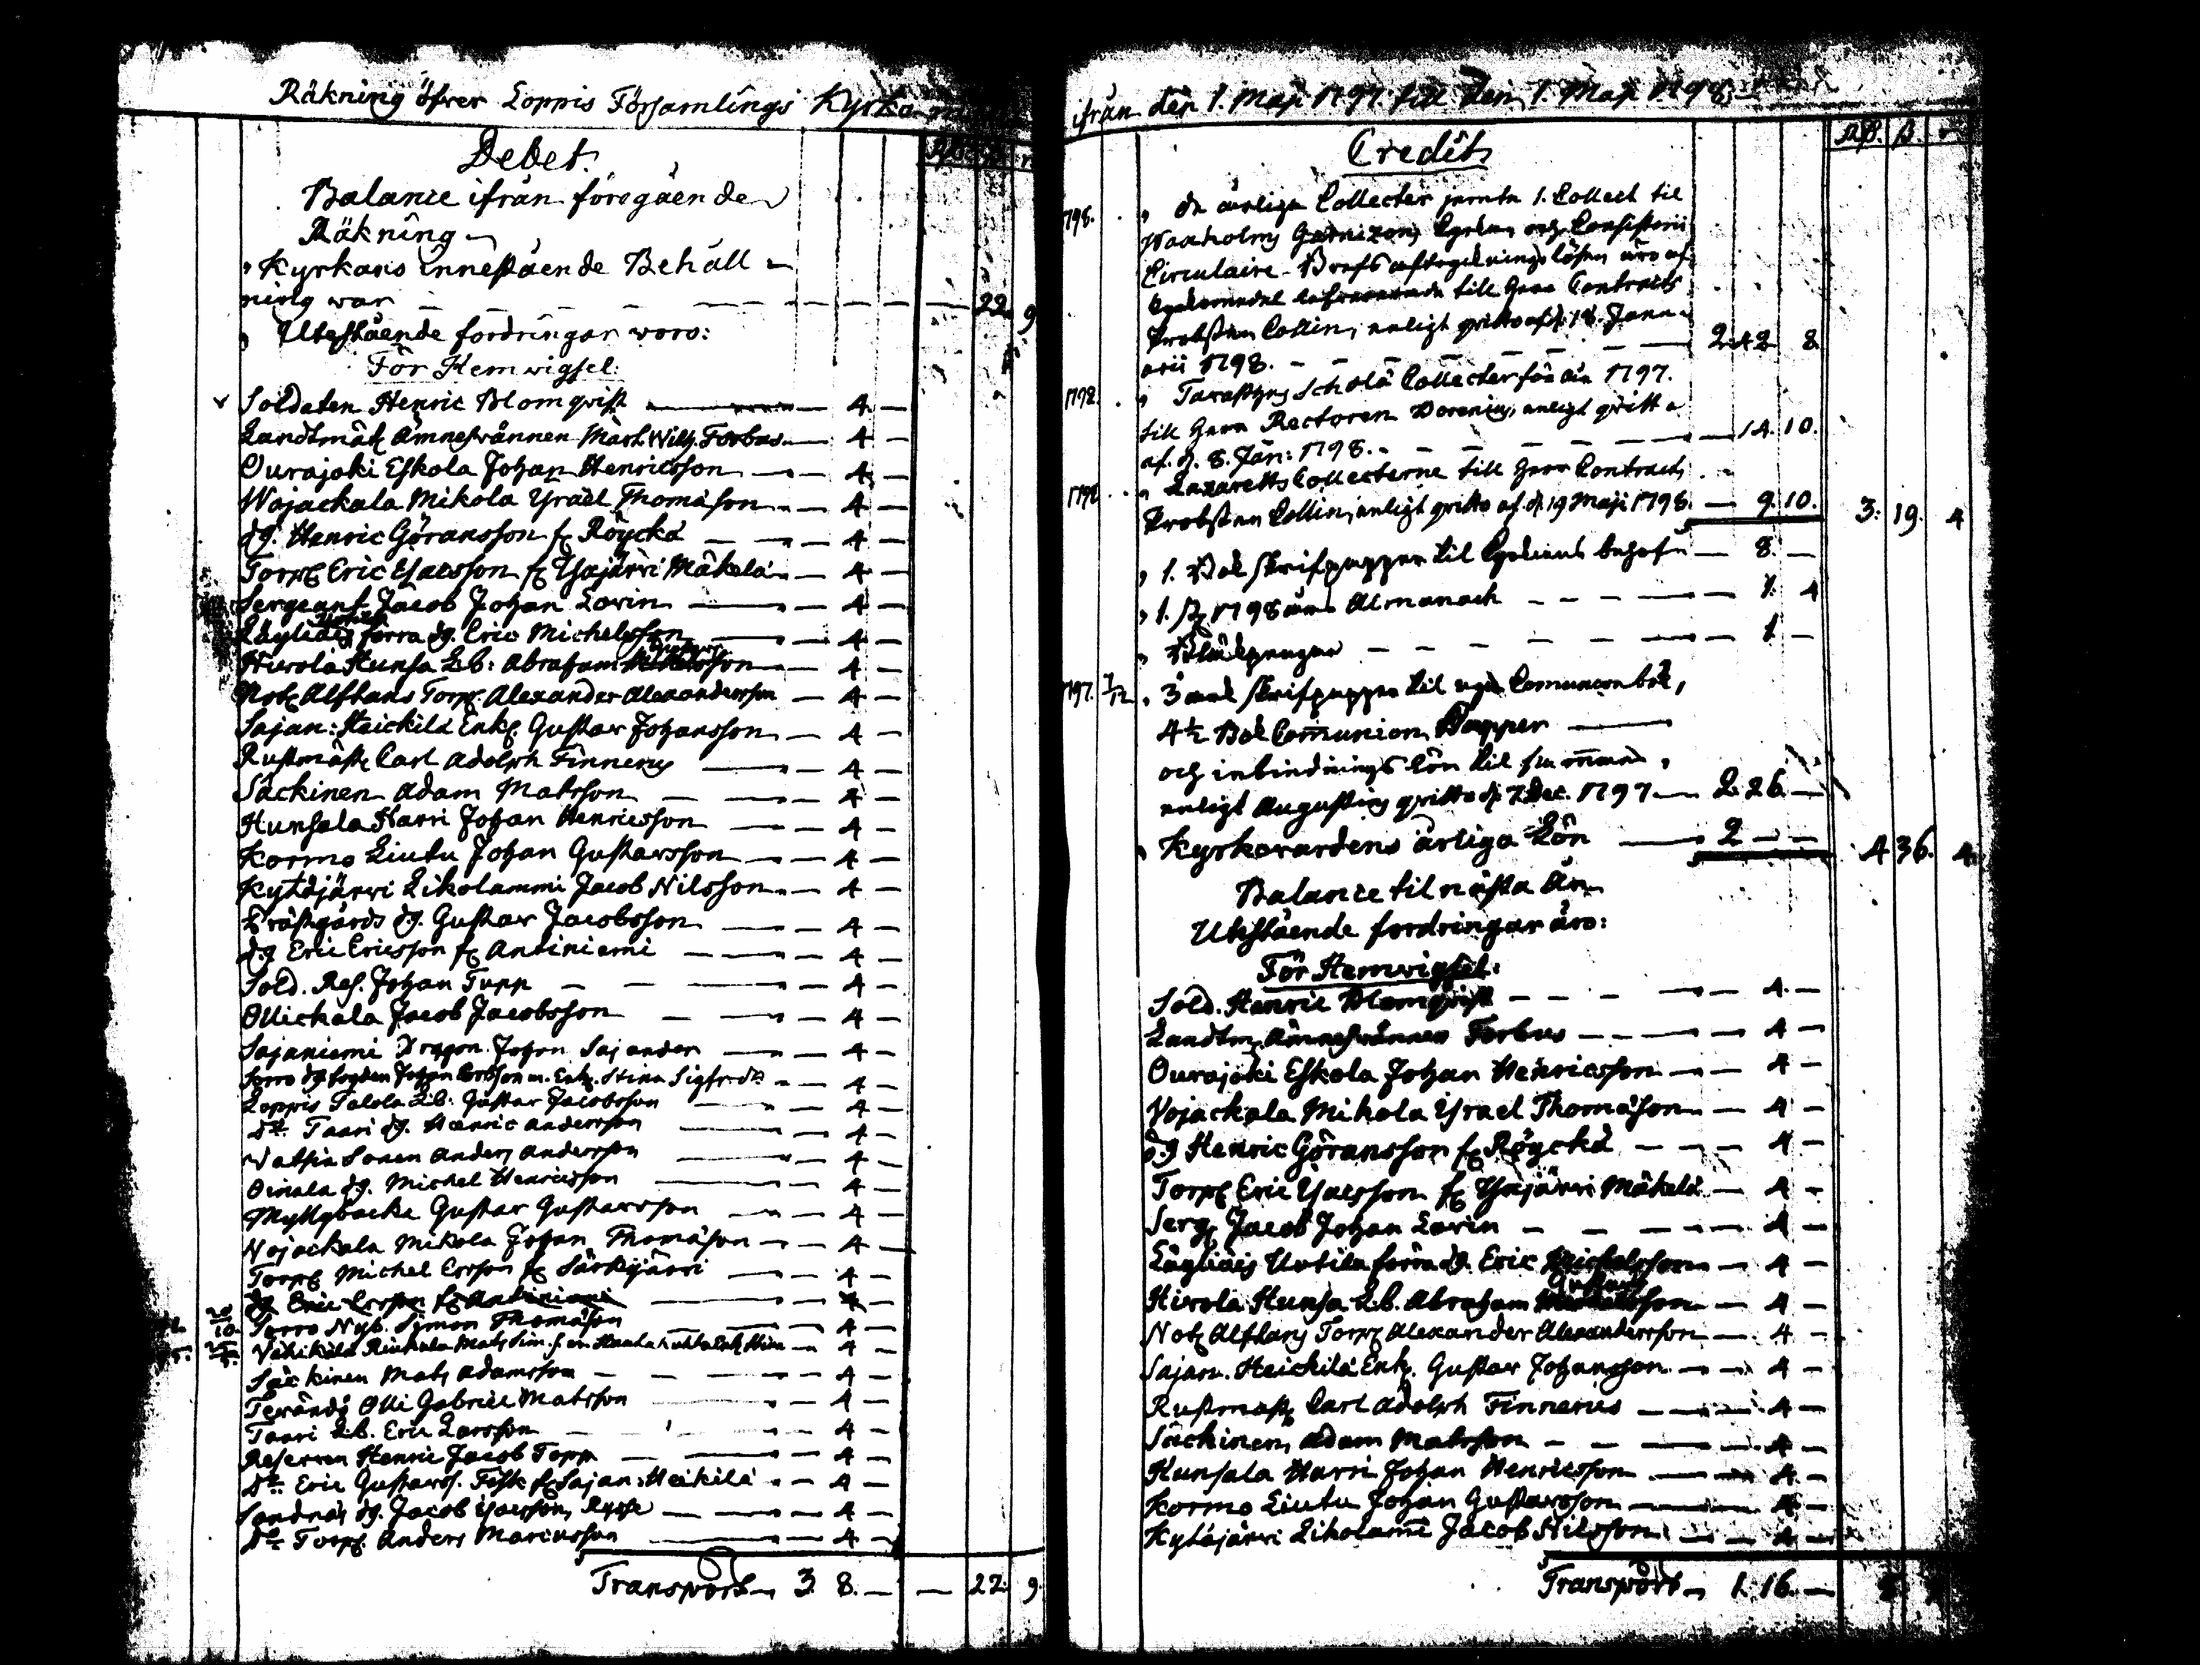 Räkning öfver Loppis Församlings Kyrko
Debet.
Balance ifrån föregående
Räkning
" Kyrkans innestående Behåll
ning war — 22. 9
" Utestående fordringar woro:
För Hemwigsel:
Soldaten Henric Blomqvist — 4 —
Landtmät. Ämnesvännen Mart. Wilh. Forbus — 4 —
Ourajoki Eskola Johan Henricsson — 4 —
Wojackala Mikola Ysrael Thomasson — 4 —
dg. Henric Göransson fr. Röyckä — 4 —
Torp. Eric Ysacsson fr. Ysajärvi Mäkelä — 4 —
Sergeant Jacob Johan Lorin — 4 —
Läyliäis förra dg. Eric Michelsson — 4 —
Hirvola Hunsa L.b. Abraham — 4 —
Not. Alftans Torp. Alexander Alexandersson — 4 —
Sajan: Heickilä Enk. Gustav Johansson — 4 —
Rustmäst. Carl Adolph Finnerus — 4 —
Säckinen Adam Matsson — 4 —
Hunsala Harri Johan Henricsson — 4 —
Kormo Liutu Johan Gustavsson — 4 —
Kytöjärvi Likolammi Jacob Nilsson — 4 —
Prästgårds dg. Gustav Jacobsson — 4 —
dg Eric Ericsson fr. Antiniemi — 4 —
Sold. Res. Johan Tupp — 4 —
Ollickala Jacob Jacobsson — 4 —
Sajaniemi Dragon Johan Sajander — 4 —
Stina Sigfrdr. — 4 —
Loppis Talola L.b. Gustav Jacobsson — 4 —
Do. Taari dg. Henric Andersson — 4 —
Anders Andersson — 4 —
Oinala dg. Michel Henricsson — 4 —
Myllyoacka Gustav Gustavsson — 4 —
Wojackala Mikola Johan Thomasson — 4 —
Torp. Michel Ersson fr. Särkijärvi — 4 —
dg Eric Ersson fr. Antiniemi — 4 —
Torro Nyb. Simon Thomasson — 4 —
Vähikälä — 4 —
Säckinen Mats Adamsson — 4 —
Terändö Olli Gabriel Matsson — 4 —
Taari L.b. Eric Larsson — 4 —
Reserven Henric Jacob Topp — 4 —
Do. Eric Gustavss. Fisk fr. Sajan: Heikilä — 4 —
Sandnäs dg. Jacob Ysacsson — 4 —
Do. Torp. Anders Marcusson — 4 —
Transport 3 8. — 22. 9
ifrån den 1. Maji 1797. till den 1. Maji 1798.
Credit
1798. " De årlige Collecter jemte 1. Collect til
Waxholms Garnizons Kyrkan och Consistorii
Circulaire
till Herr Contracts
Probsten Collin, enligt qvitto af d. 18. Janu-
arii 1798. — 2. 42. 8.
1798. " Tavastehus Schola Collecter för år 1797.
till Herr Rectoren enligt qvitto
af. d. 8. Jan: 1798. — 14. 10.
1798 " Lazaretts Collecterne till Herr Contracts
Probsten Collin, enligt qvitto af. d. 19 Maji 1798. — 9. 10. 3. 19. 4
" 1. Bok skrifpapper til Kyrkans behof — 8. —
" 1. st. 1798 års Almanach — 1. 4
" Bläckpengar — 1 —
1797. 7/12 " 3 til nya Comunionbok,
4½ Bok Comunion Papper —
och inbindnings lön til
enligt Augustins qvitto d. 7. Dec. 1797 — 2 26 —
" Kyrkovardens årliga Lön — 2 — — 4 36. 4.
Balance til nästa År
Utestående fordringar äro:
För Hemwigsel:
Sold. Henric Blomqvist — 4 —
Landtm. Ämnesvännen Forbus — 4 —
Ourajoki Eskola Johan Henricsson — 4 —
Vojackala Mikola Ysrael Thomasson — 4 —
dg Henric Göransson fr. Röyckä — 4 —
Torp. Eric Ysacsson fr. Ysajärvi Mäkelä — 4 —
Serg. Jacob Johan Lorin — 4 —
Läyliäis Uotila förra dg. Eric Michelsson — 4 —
Hirvola Hunsa L.b. Abraham — 4 —
Not. Alftans Torp. Alexander Alexandersson — 4 —
Sajan. Heickilä Enk. Gustav Johansson — 4 —
Rustmäst. Carl Adolph Finnerus — 4 —
Säckinen Adam Matsson — 4 —
Hunsala Harri Johan Henricsson — 4 —
Kormo Liutu Johan Gustavsson — 4 —
Kytöjärvi Likolami Jacob Nilsson — 4 —
Transport 1. 16. —